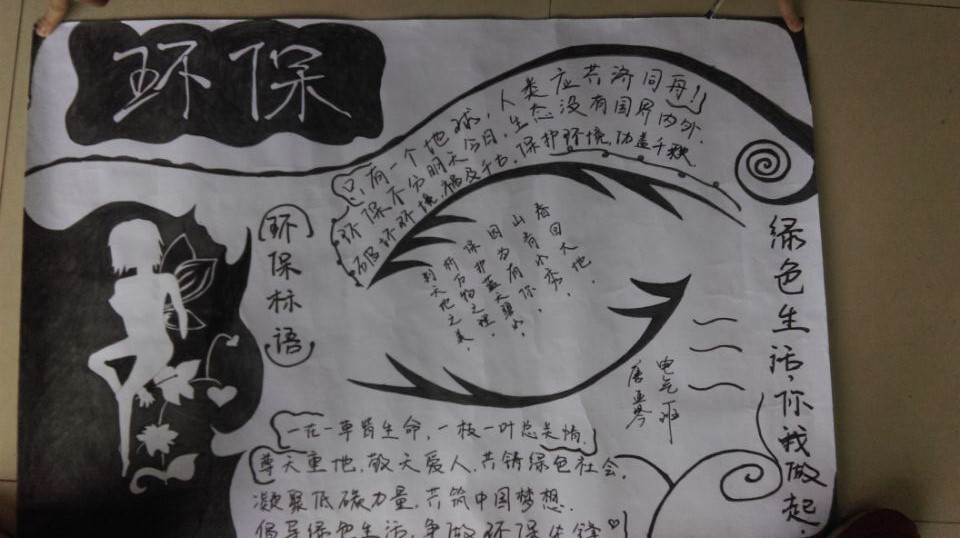 环保
只有一个地球，人类应共济同舟！
环保不分明天今日，生态没有国界内外.
破坏环境，祸及千古，保护环境，功盖千秋.
环保标语
春回大地，
山青水秀，
因为有你，
保护蓝天碧水，
析万物之理，
判天地之美，
绿色生活，你我做起.
电气班
唐亚琴
一花一草皆生命，一枝一叶总关情.
尊天重地，敬天爱人，共铸绿色社会.
凝聚低碳力量，共筑中国梦想.
倡导绿色生活，争做环保先锋